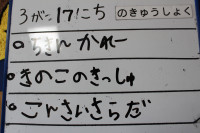 3がつ17にち
のきゅうしょく
ちきんかれー
きのこのきっしゅ
こんさいさらだ